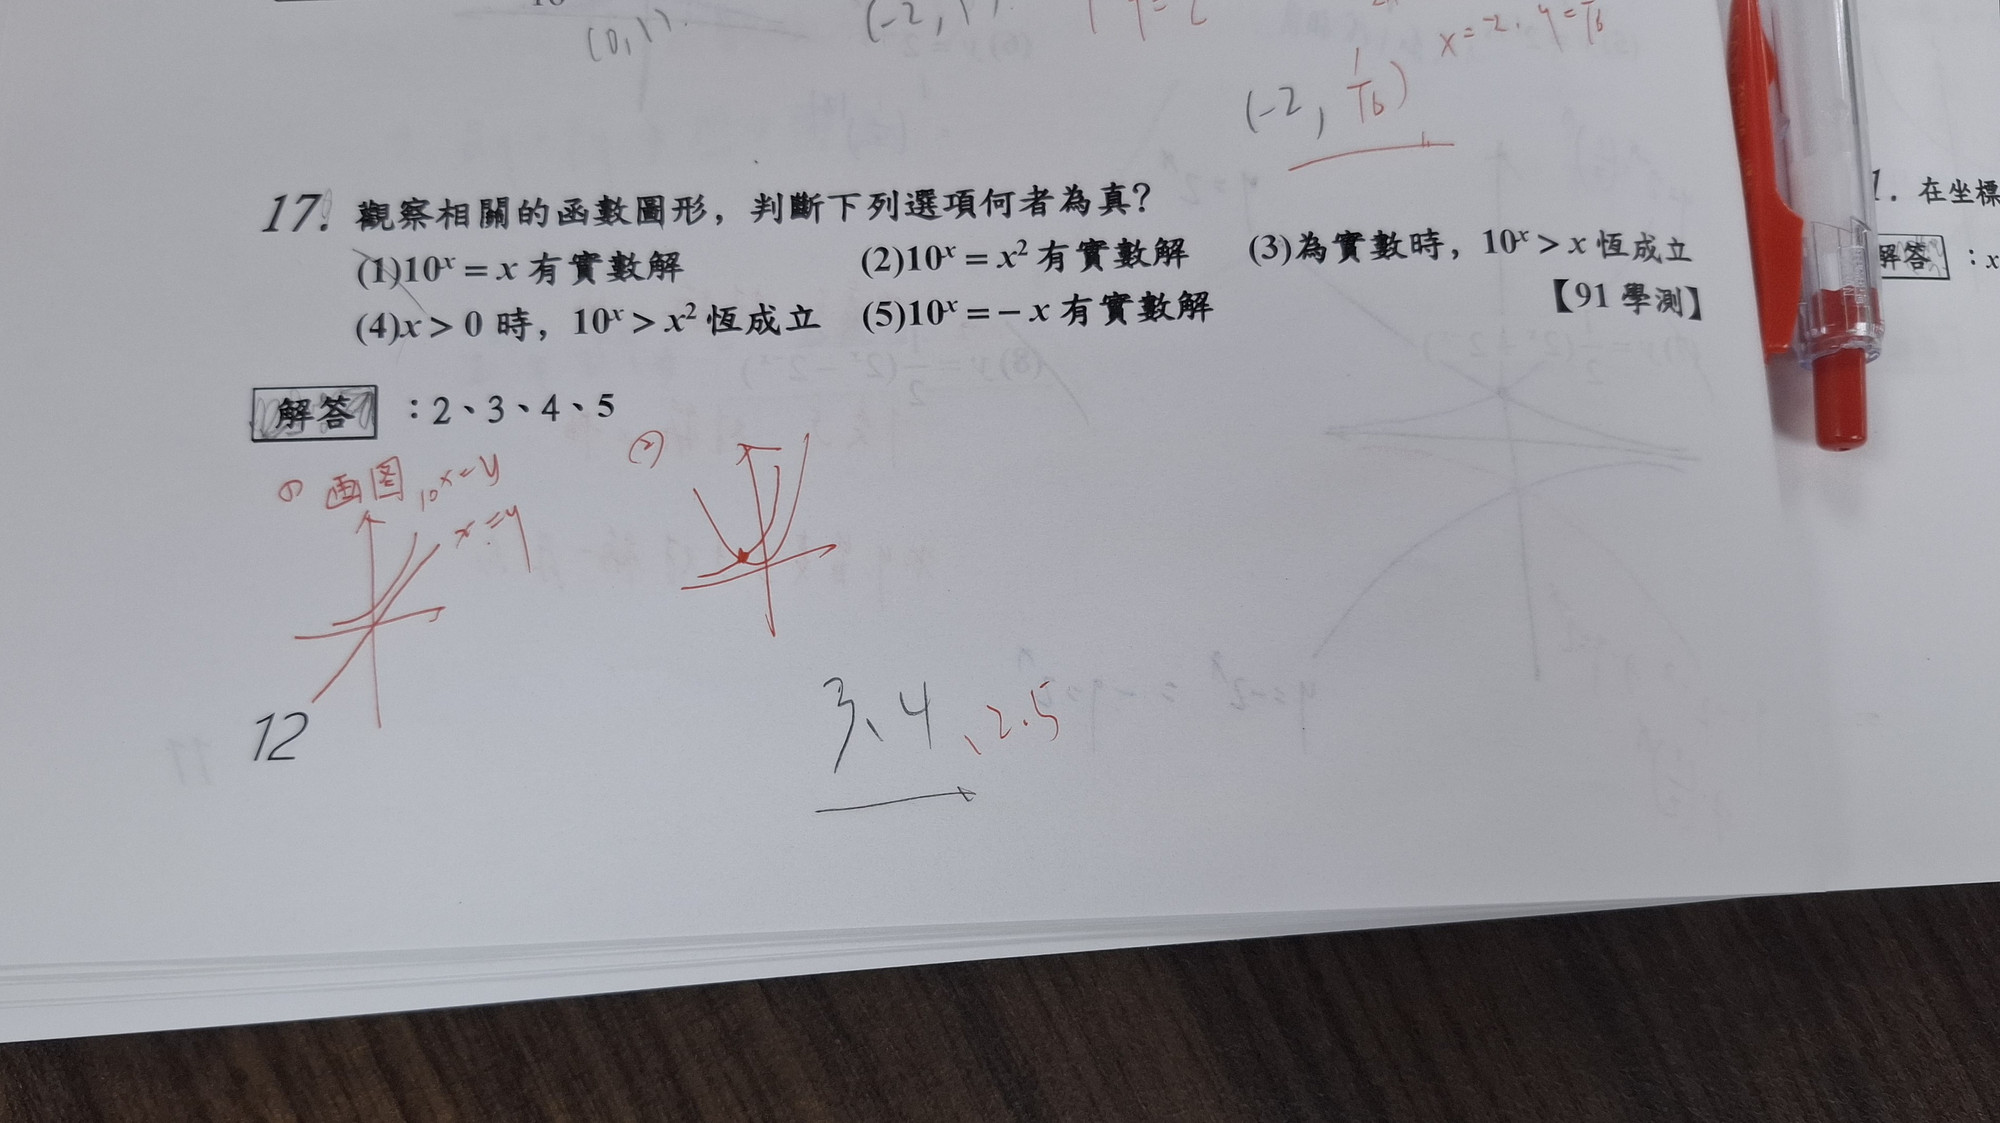 (0,1).
x=-2. y=1/16
(-2, 1/16)
17. 觀察相關的函數圖形，判斷下列選項何者為真？
(1)10^x = x 有實數解 (2)10^x = x^2 有實數解 (3)為實數時，10^x > x 恆成立
(4)x > 0 時，10^x > x^2 恆成立 (5)10^x = − x 有實數解 【91 學測】
解答 ：2、3、4、5
(1) 画图 10^x=y
x=y
(2)
3、4、2.5
12
1. 在坐標
解答 ：x